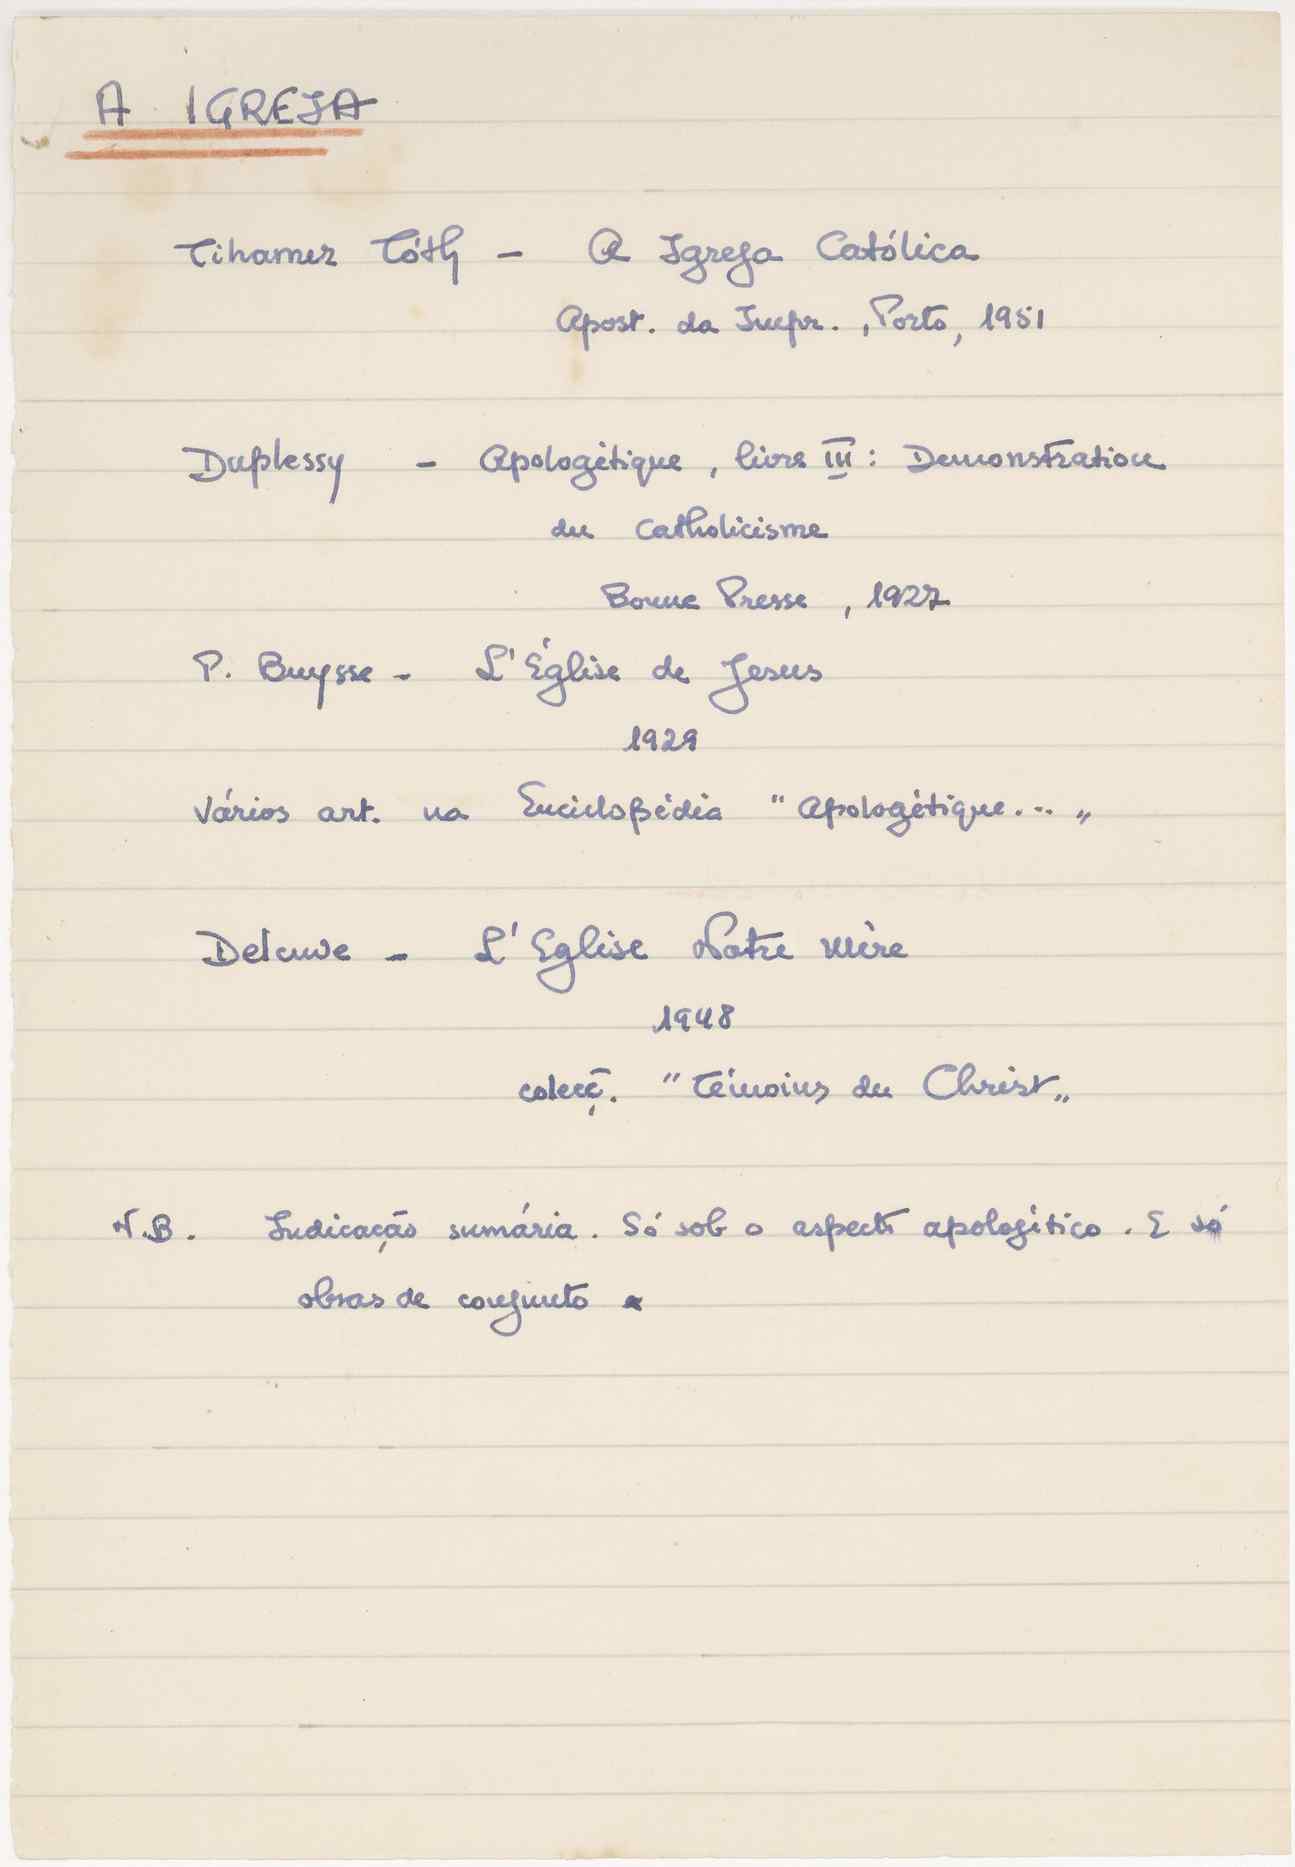 A IGREJA
Tihamer Tóth - A Igreja Católica
Apost. da Impr., Porto, 1951
Duplessy - Apologétique, livre III: Demonstration
du Catholicisme
Bonne Presse, 1927
P. Buysse - L'Église de Jesus
1929
Vários art. na Enciclopédia "Apologétique... "
Deleuve - L'Eglise Notre Mère
1948
colecç. "Témoins du Christ"
N.B. Indicação sumária. Só sob o aspecto apologético. E só
obras de conjunto